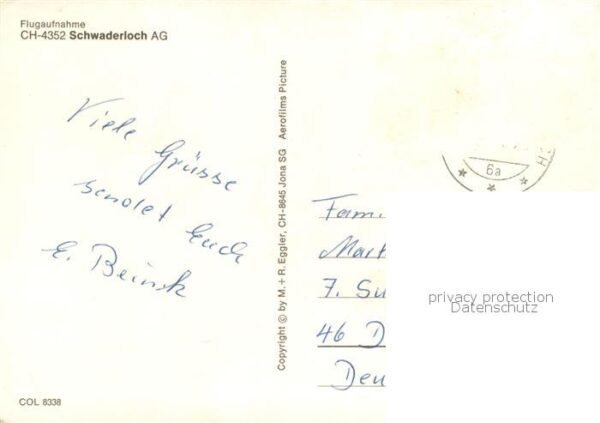 Flugaufnahme
CH-4352 Schwaderloch AG
Viele Grüsse
sendet Euch
E.
Copyright © by M. + R. Eggler, CH-8645 Jona SG Aerofilms Picture
6a
Fam.
7. Su
46 D
privacy protection
Datenschutz
COL 8338